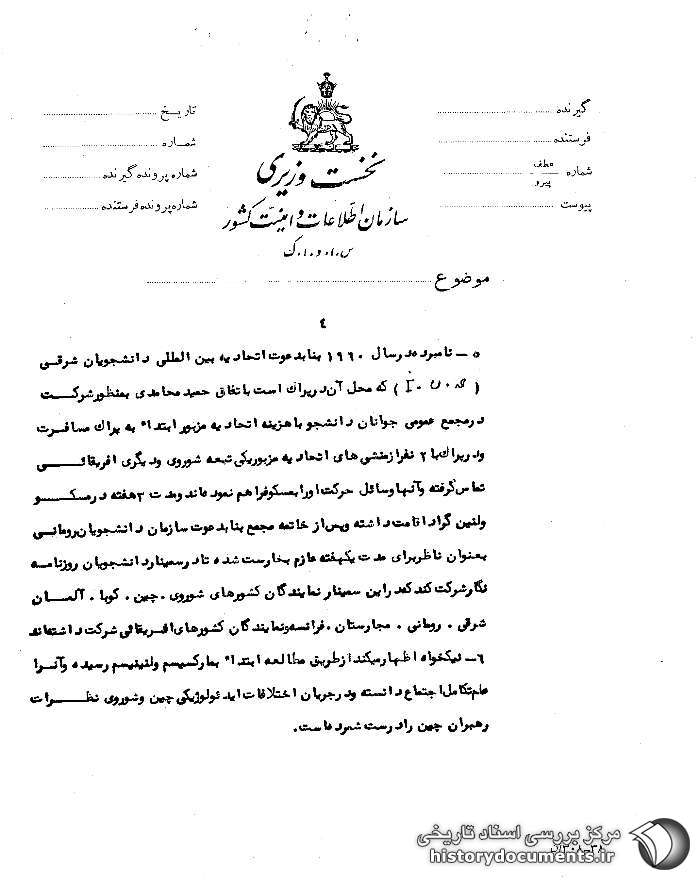 گیرنده
فرستنده
شماره عطف پیرو
پیوست
تاریخ
شماره
شماره پرونده گیرنده
شماره پرونده فرستنده
نخست وزیری
سازمان اطلاعات و امنیت کشور
س.ا.و.ا.ک
موضوع
٤
٥ - نامبرده در سال ١٩٦٠ بنا بدعوت اتحادیه بین المللی دانشجویان شرقی
( I. U. S ) که محل آن در پراک است باتفاق حمید محامدی بمنظور شرکت
در مجمع عمومی جوانان دانشجو با هزینه اتحادیه مزبور ابتداء به پراک مسافرت
و در پراک با ٢ نفر از منشی های اتحادیه مزبور یکی تبعه شوروی و دیگری افریقائی
تماس گرفته و آنها وسائل حرکت او را بمسکو فراهم نموده اند و مدت ٣ هفته در مسکو
و لنین گراد اقامت داشته و پس از خاتمه مجمع بنا بدعوت سازمان دانشجویان رومانی
بعنوان ناظر برای مدت یکهفته عازم بخارست شده تا در سمینار دانشجویان روزنامه
نگار شرکت کند که در این سمینار نمایندگان کشورهای شوروی . چین . کوبا . آلمان
شرقی . رومانی . مجارستان . فرانسه و نمایندگان کشورهای افریقائی شرکت داشته اند
٦ - نیکخواه اظهار میکند از طریق مطالعه ابتداء بمارکسیسم و لنینیسم رسیده و آنرا
علم تکامل اجتماع دانسته و در جریان اختلافات ایدئولوژیکی چین و شوروی نظرات
رهبران چین را درست شمرده است.
مرکز بررسی اسناد تاریخی
historydocuments.ir